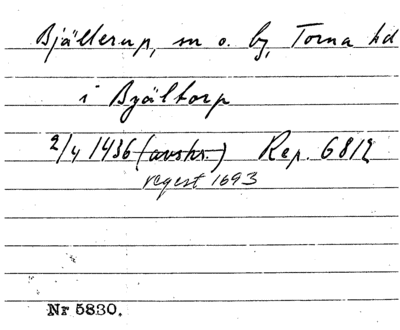 Bjällerup, sn o. by, Torna hd
i Byältorp
2/4 1436 (avskr.) Rep. 6812
regest 1693
Nr 5830.